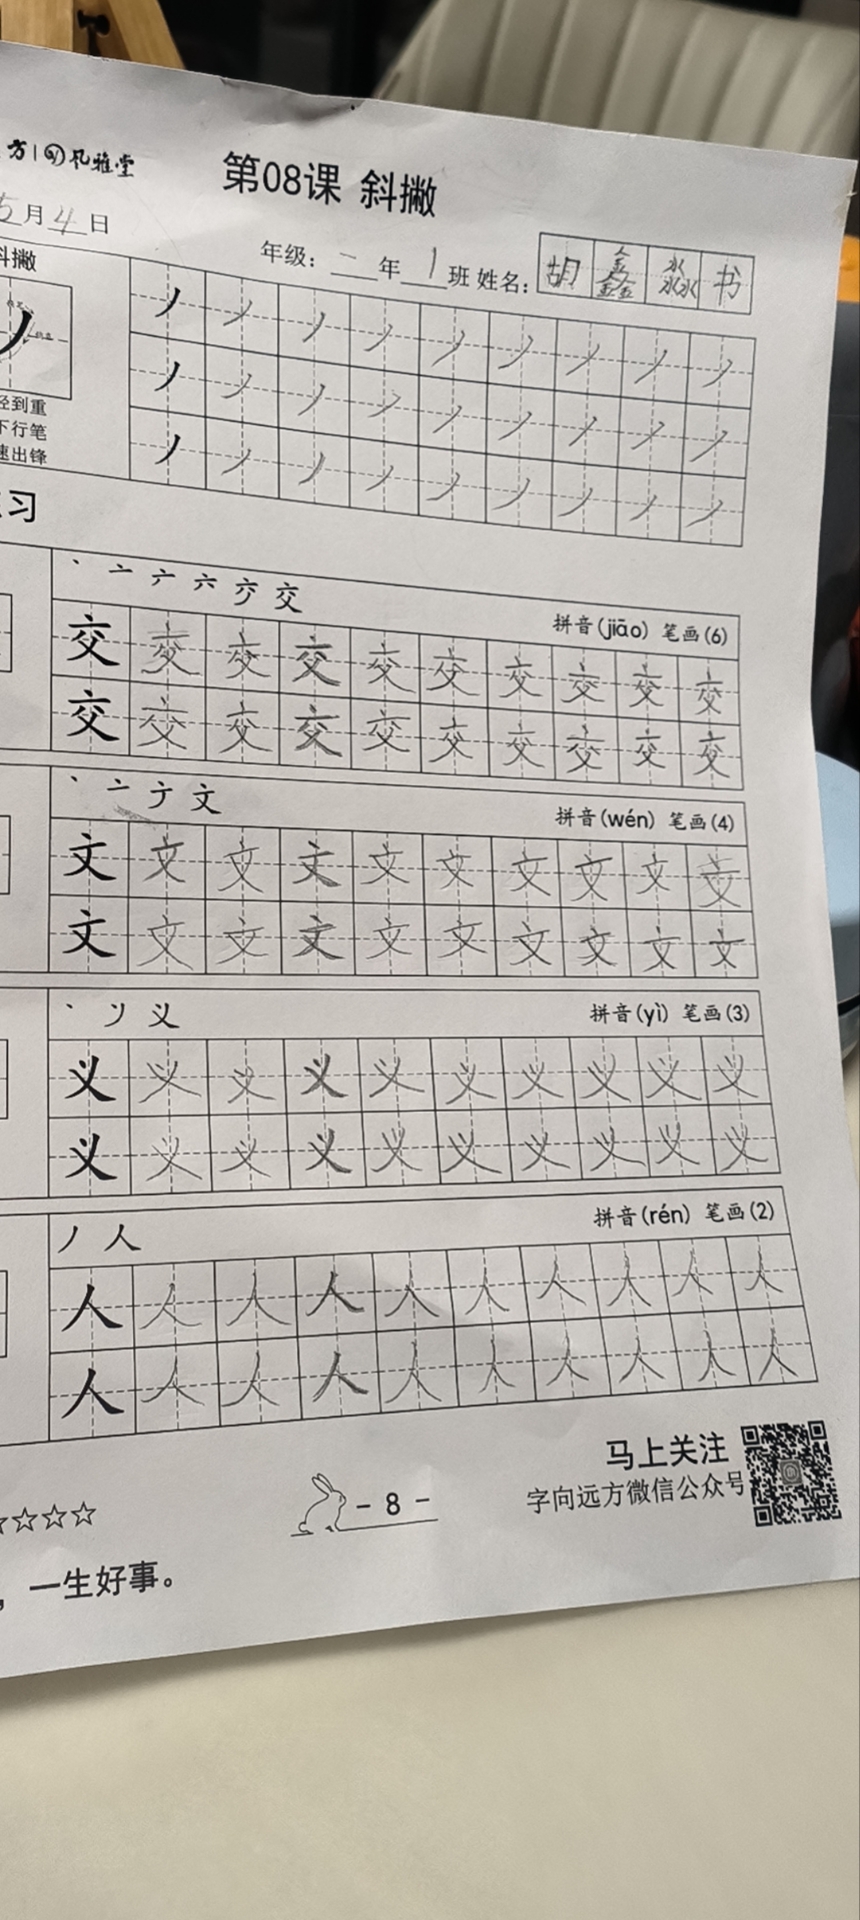 方 | 风雅堂
第08课 斜撇
5月4日
年级：二年1班 姓名：胡鑫淼书
斜撇
轻到重
下行笔
速出锋
习
丶 亠 六 交
拼音(jiāo) 笔画(6)
交 交 交 交 交 交 交 交 交 交
交 交 交 交 交 交 交 交 交 交
丶 亠 文
拼音(wén) 笔画(4)
文 文 文 文 文 文 文 文 文 文
文 文 文 文 文 文 文 文 文 文
丶 义
拼音(yì) 笔画(3)
义 义 义 义 义 义 义 义 义 义
义 义 义 义 义 义 义 义 义 义
丿 人
拼音(rén) 笔画(2)
人 人 人 人 人 人 人 人 人 人
人 人 人 人 人 人 人 人 人 人
马上关注
字向远方微信公众号
☆☆☆
- 8 -
，一生好事。